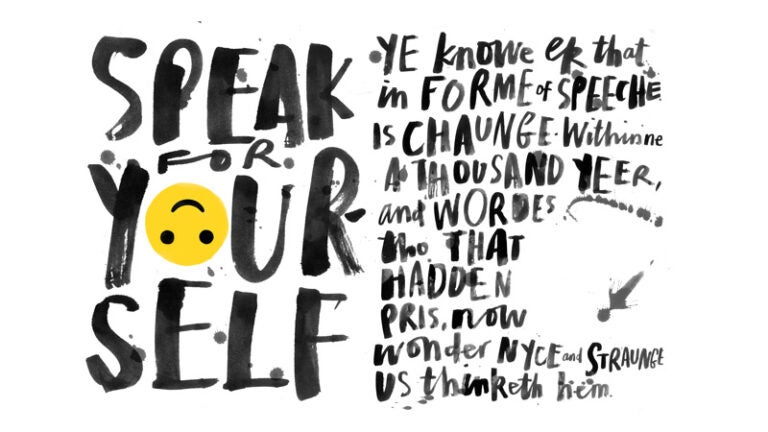 SPEAK
FOR
YOUR
SELF
YE knowe ek that
in FORME of SPEECHE
IS CHAUNGE. Withinne
A THOUSAND YEER,
and WORDES
tho THAT
HADDEN
PRIS, now
wonder NYCE and STRAUNGE
US thinketh hem.